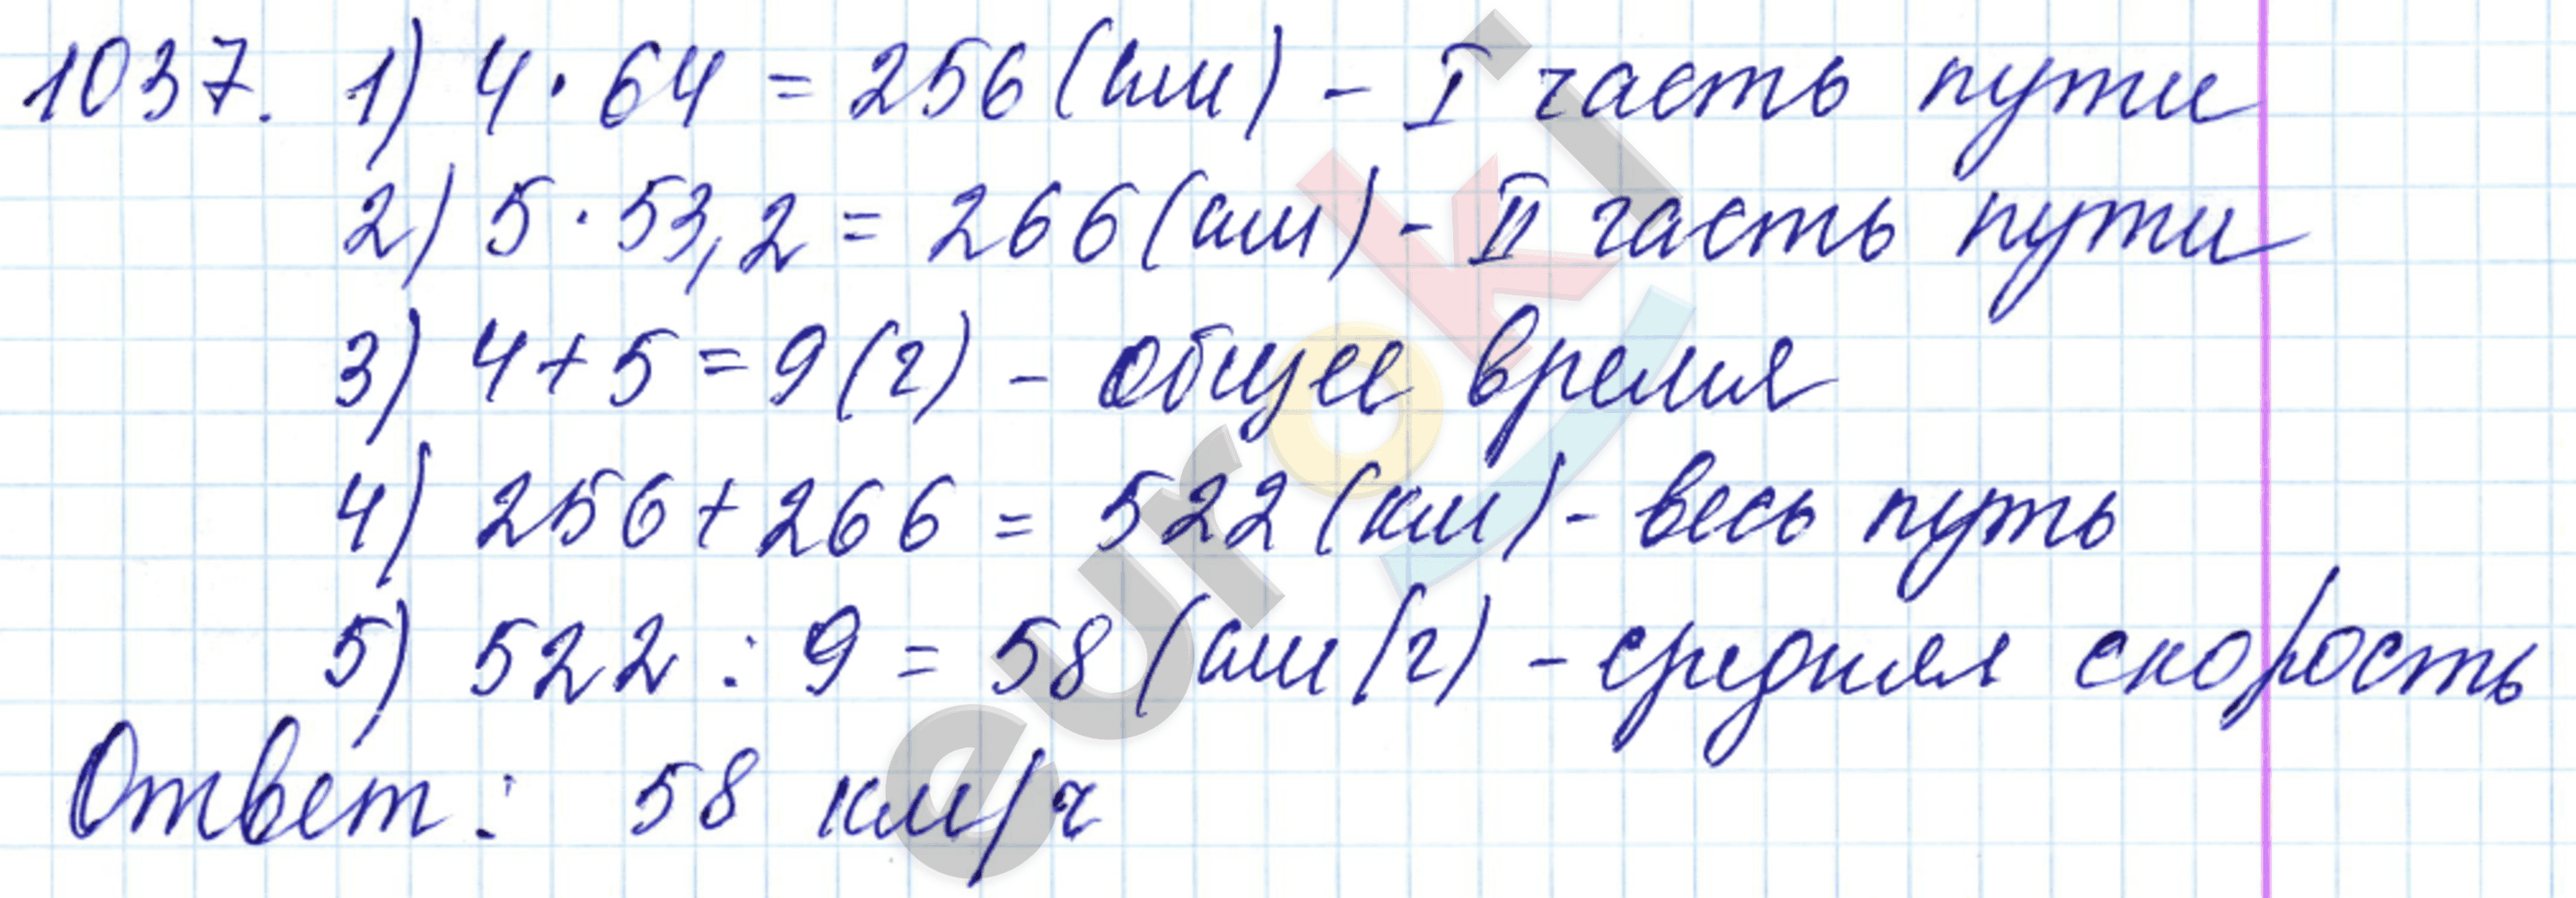 1037. 1) 4 · 64 = 256 (км) - I часть пути
2) 5 · 53,2 = 266 (км) - II часть пути
3) 4 + 5 = 9 (ч) - общее время
4) 256 + 266 = 522 (км) - весь путь
5) 522 : 9 = 58 (км/ч) - средняя скорость
Ответ: 58 км/ч
euroki